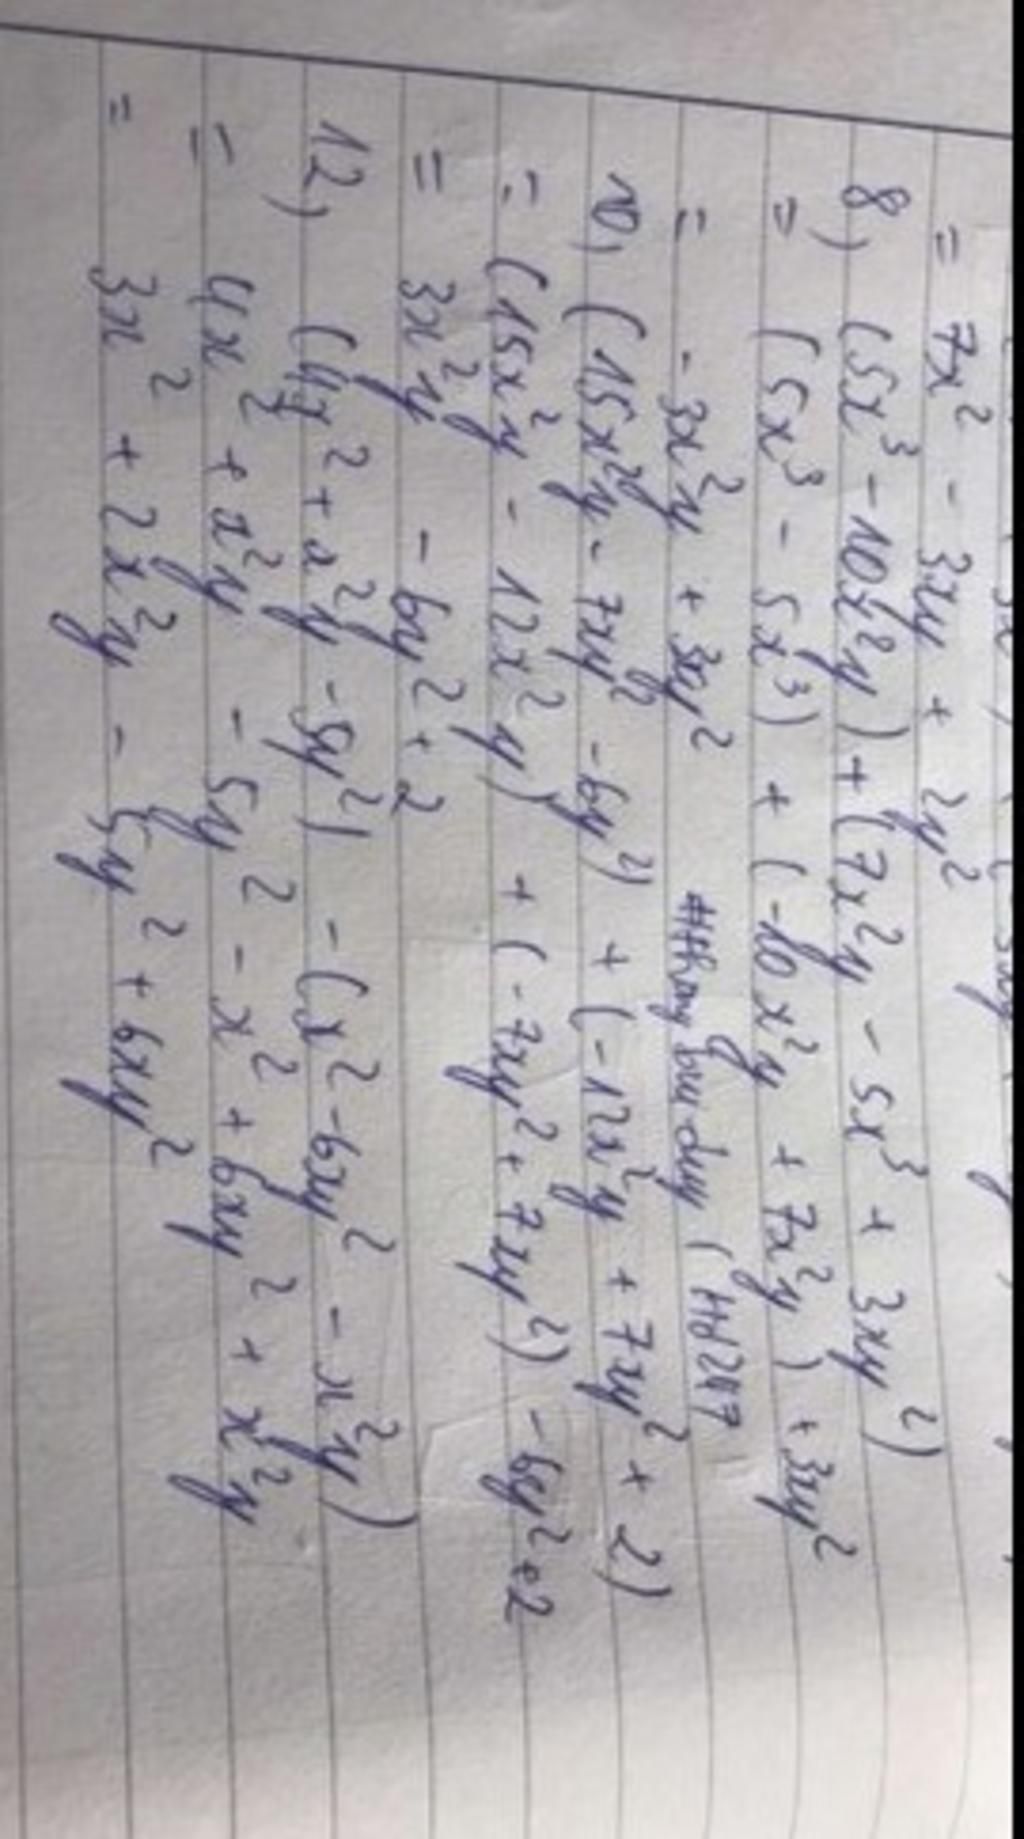 = 7x² - 3xy + 2y²
8) (5x³ - 10x²y) + (7x²y - 5x³ + 3xy²)
= (5x³ - 5x³) + (-10x²y + 7x²y) + 3xy²
= -3x²y + 3xy² #thuybuiduy (Hd247
10) (15x²y - 7xy² - 6y²) + (-12x²y + 7xy² + 2)
= (15x²y - 12x²y) + (-7xy² + 7xy²) - 6y² + 2
= 3x²y - 6y² + 2
12) (4x² + x²y - 5y²) - (x² - 6xy² - x²y)
= 4x² + x²y - 5y² - x² + 6xy² + x²y
= 3x² + 2x²y - 5y² + 6xy²